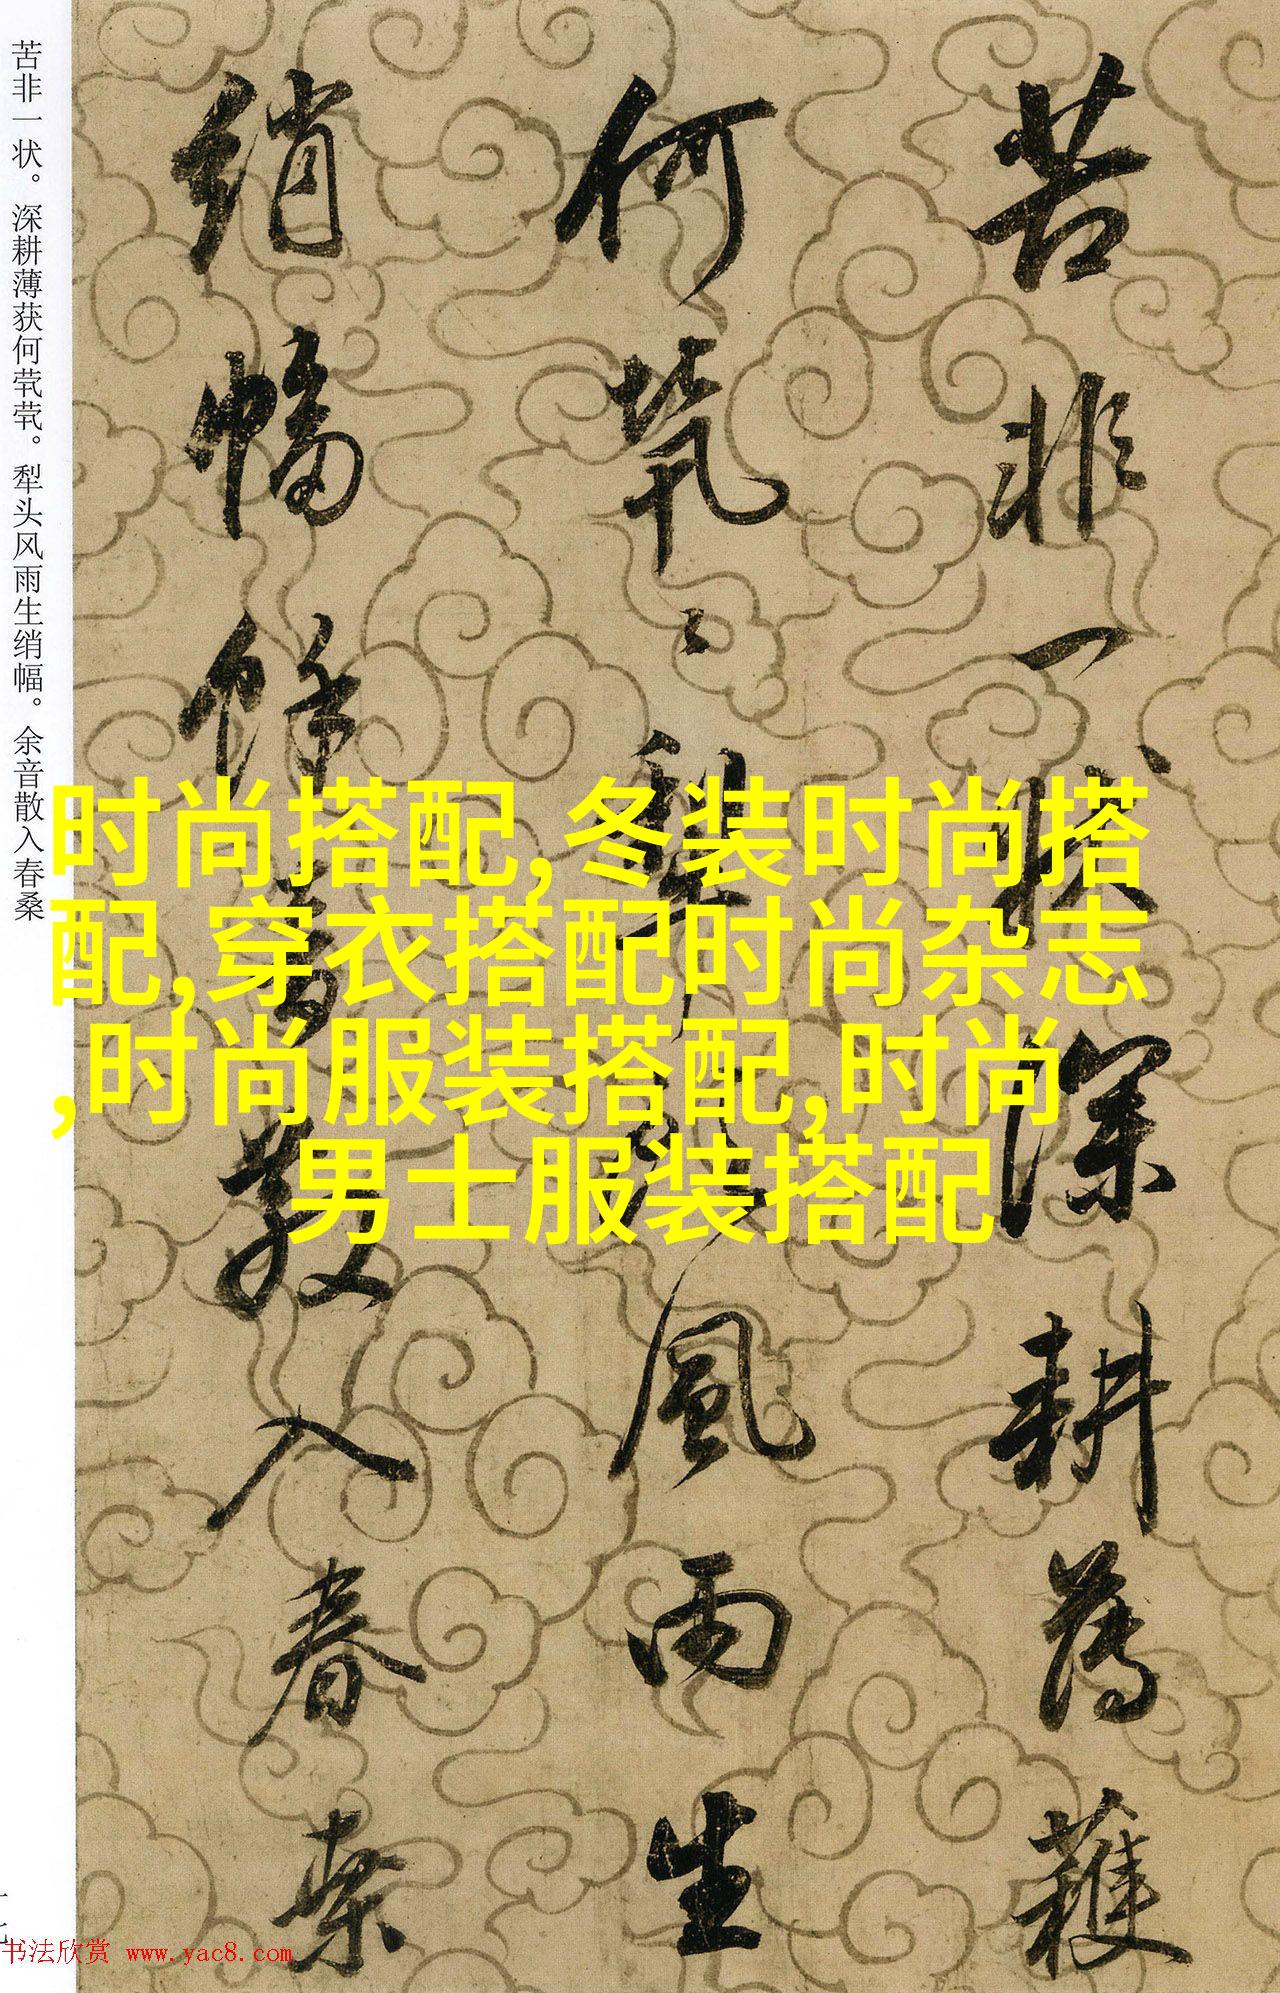 苦非一状。深耕薄获何茕茕。犁头风雨生绡幅。余音散入春桑
苦非一狀深耕薄穫
何煢〻犁頭風雨生
綃幅餘音散入春桑
时尚搭配,冬装时尚搭
配,穿衣搭配时尚杂志
,时尚服装搭配,时尚
男士服装搭配
书法欣赏 www.yac8.com